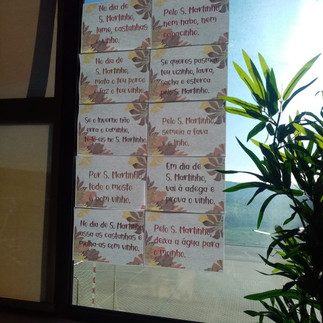 No dia de
S. Martinho,
lume, castanhas
e vinho.
Pelo S. Martinho,
nem nabo, nem
No dia de
S. Martinho,
mata o teu porco
faz o teu vinho.
Se queres pasmar
teu vizinho, lavra,
sacha e esterca
pelo S. Martinho.
Se o inverno não
erra o caminho,
tê-lo-ei no S. Martinho
Pelo S. Martinho,
semeia a fava
linho.
Por S. Martinho
todo o mosto
bom vinho.
Em dia de
S. Martinho,
vai à adega e
prova o vinho.
No dia de S. Martinho
assa as castanhas e
molha-as com vinho.
Pelo S. Martinho,
deixa a água para
o moinho.